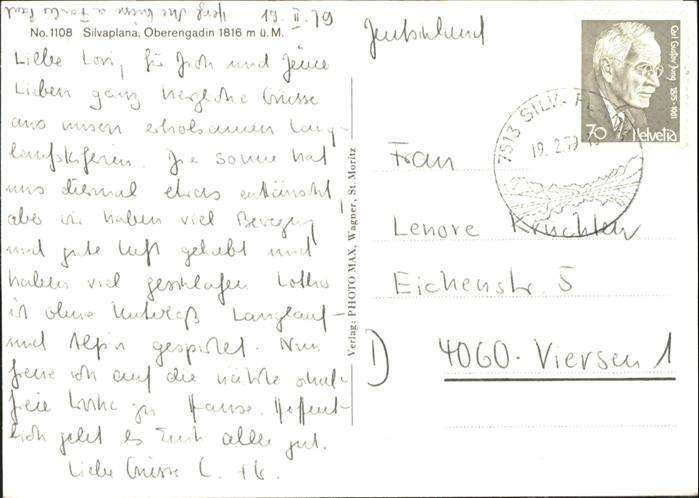 19.II.79
No.1108 Silvaplana, Oberengadin 1816 m ü.M.
Liebe Lori, für Dich und Deine
Lieben ganz herzliche Grüsse
aus unsern erholsamen Lang-
laufskiferien. Die Sonne hat
uns diesmal etwas enttäuscht,
aber wir haben viel Bewegung
und gute Luft gehabt und
haben viel geschlafen. Lothar
ist ohne Unterlaß Langlauf-
und Alpin gespurtet. Nun
freue ich auf die nächste schul-
freie Woche zu Hause. Hoffent-
lich geht es Euch allen gut.
Liebe Grüsse
Verlag: PHOTO MAX, Wagner, St. Moritz
Deutschland
Carl Gustav Jung 1875-1961
70 Helvetia
7513 SILVAPLANA
19.2.79
Frau
Lenore Krüchten
Eichenstr. 5
D 4060 · Viersen 1